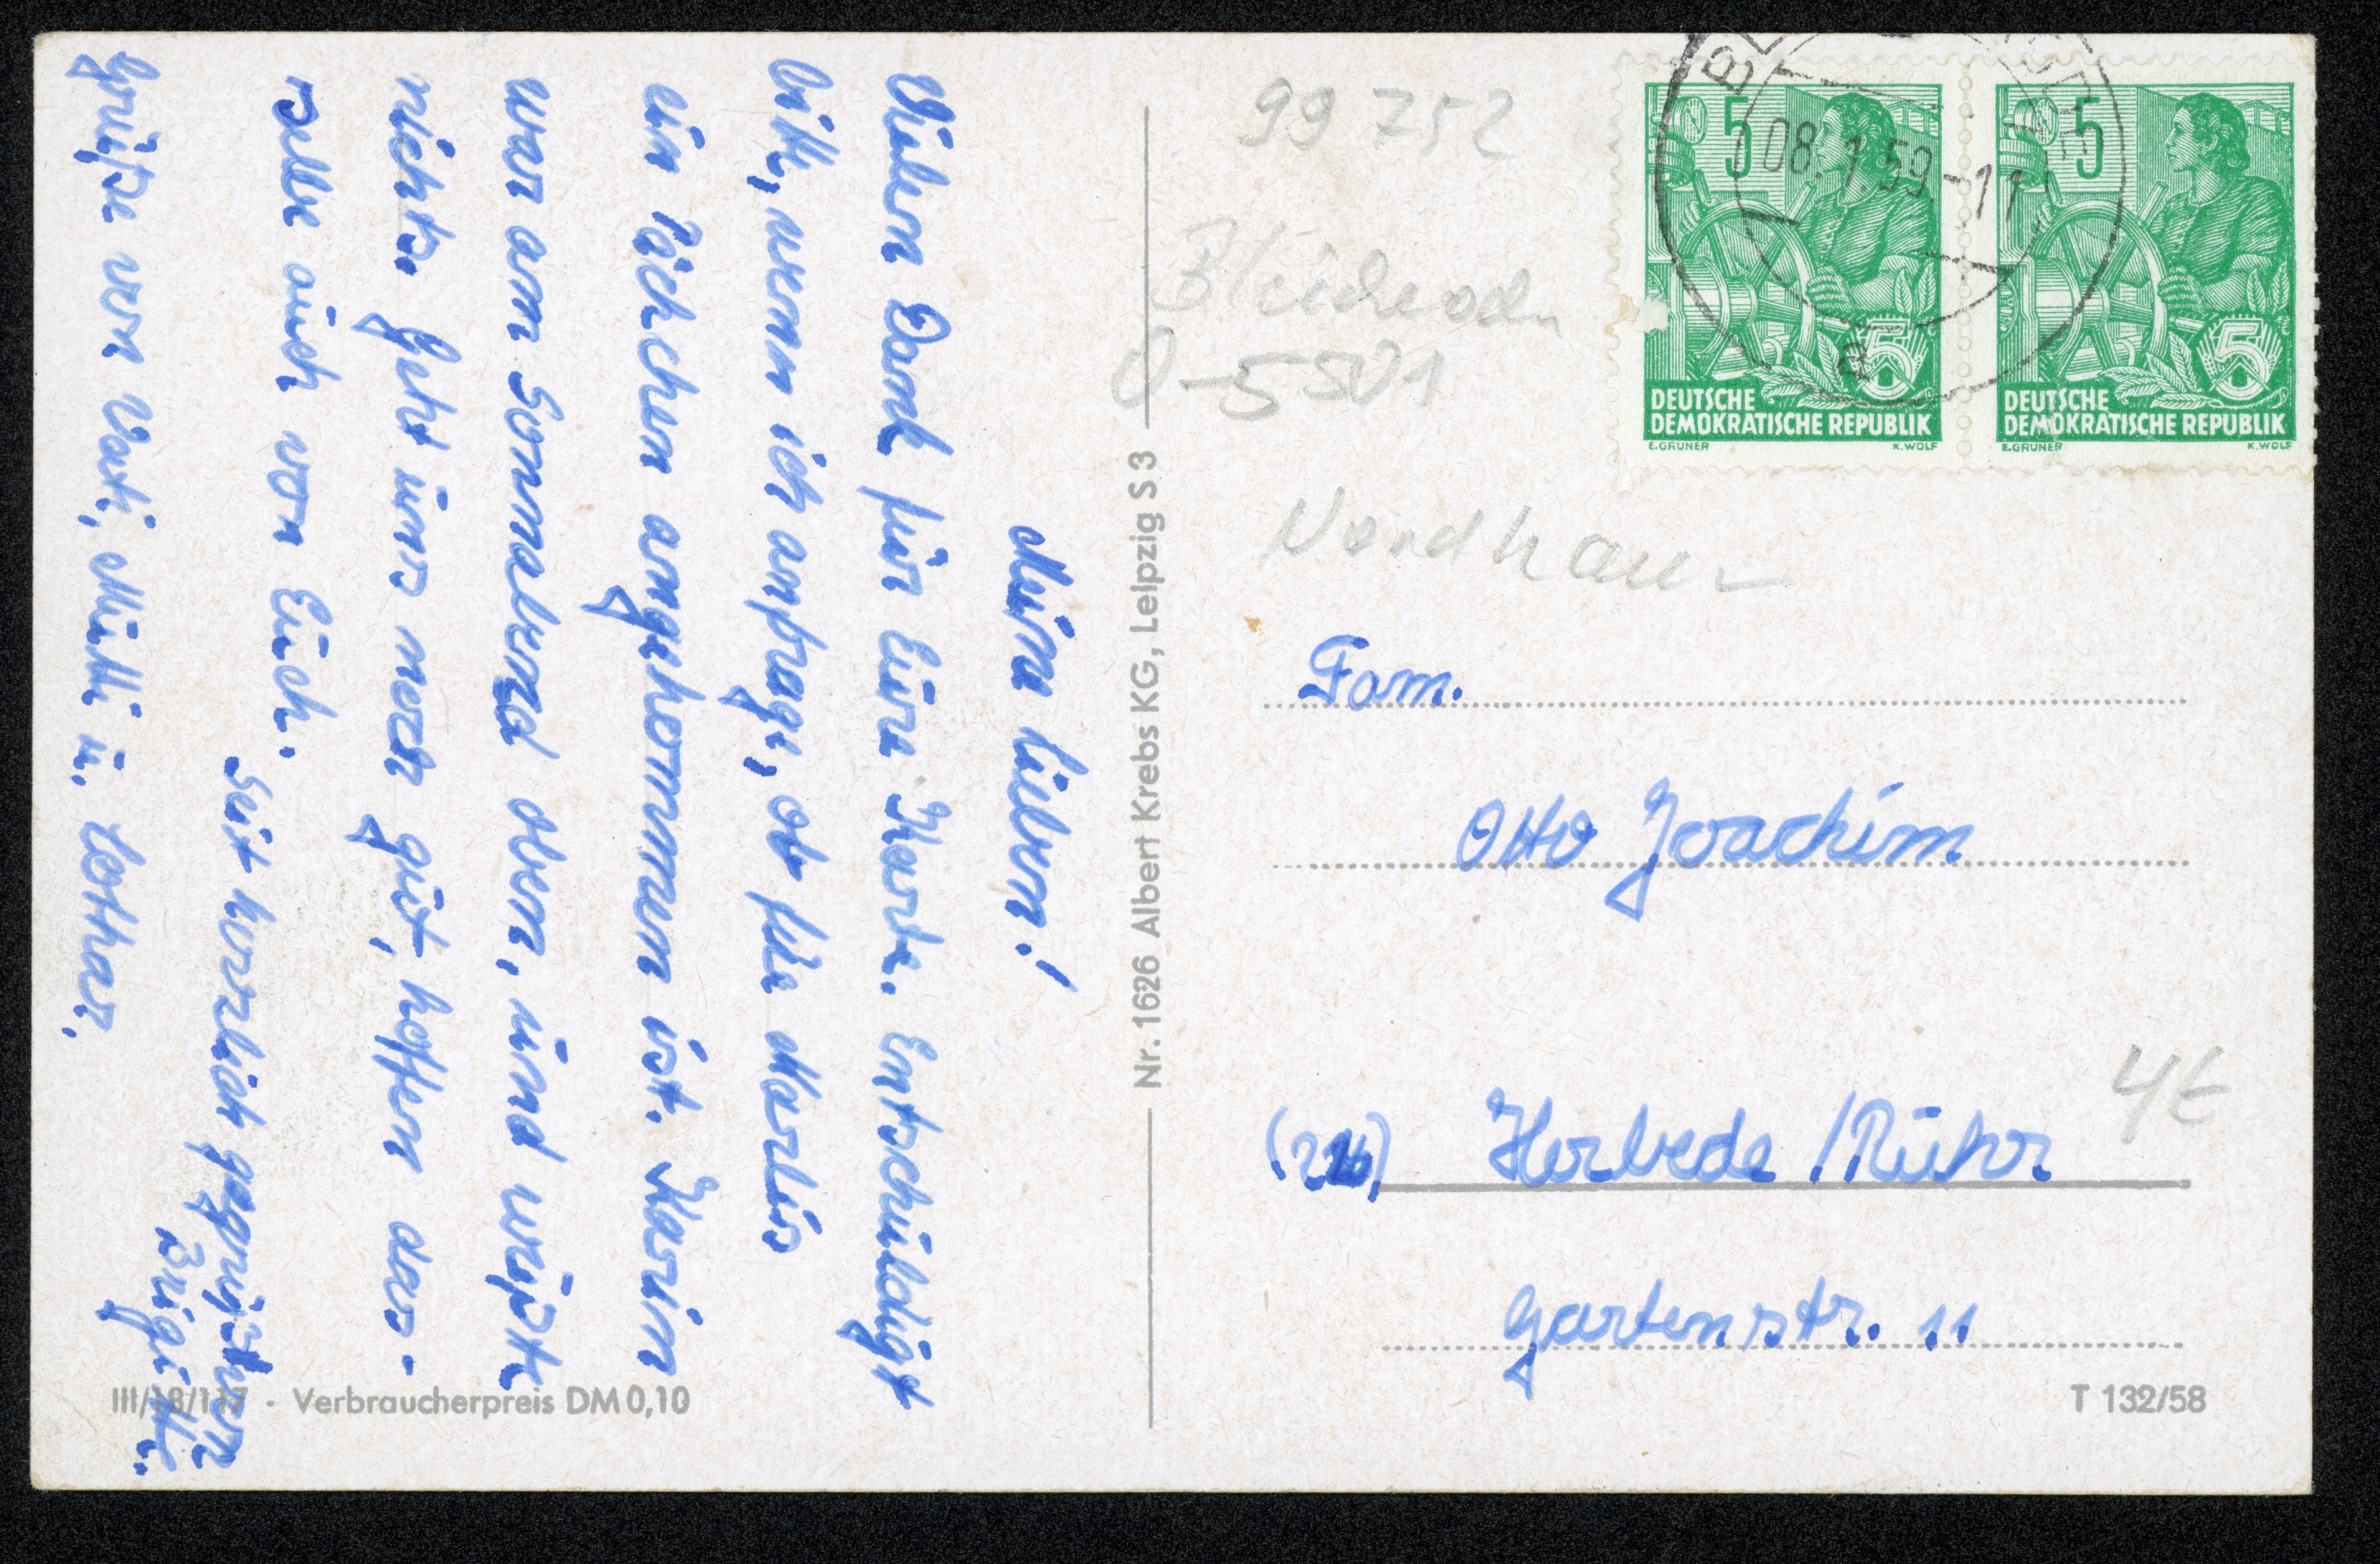 Meine lieben!
Vielen Dank für Eure Karte. Entschüldigt
bitte, wenn ich anfrage, ob für Marlis
ein Päckchen angekommen ist. Karin
war am Sonnabend oben, und wüßte
nichts. Geht uns noch gut, hoffen das-
selbe auch von Euch.
Seit herzlich gegrüßt von
Brigitte.
Grüße von Vati, Mutti u. Lothar.
Nr. 1626 Albert Krebs KG, Leipzig S 3
III/18/117 · Verbraucherpreis DM 0,10
99 752
Bleicherode
O-5501
Nordhausen
08.1.59-11
a
5
DEUTSCHE
DEMOKRATISCHE REPUBLIK
E.GRUNER K.WOLF
5
DEUTSCHE
DEMOKRATISCHE REPUBLIK
E.GRUNER K.WOLF
Fam.
Otto Joachim
Herbede /Ruhr
4€
Gartenstr. 11
T 132/58